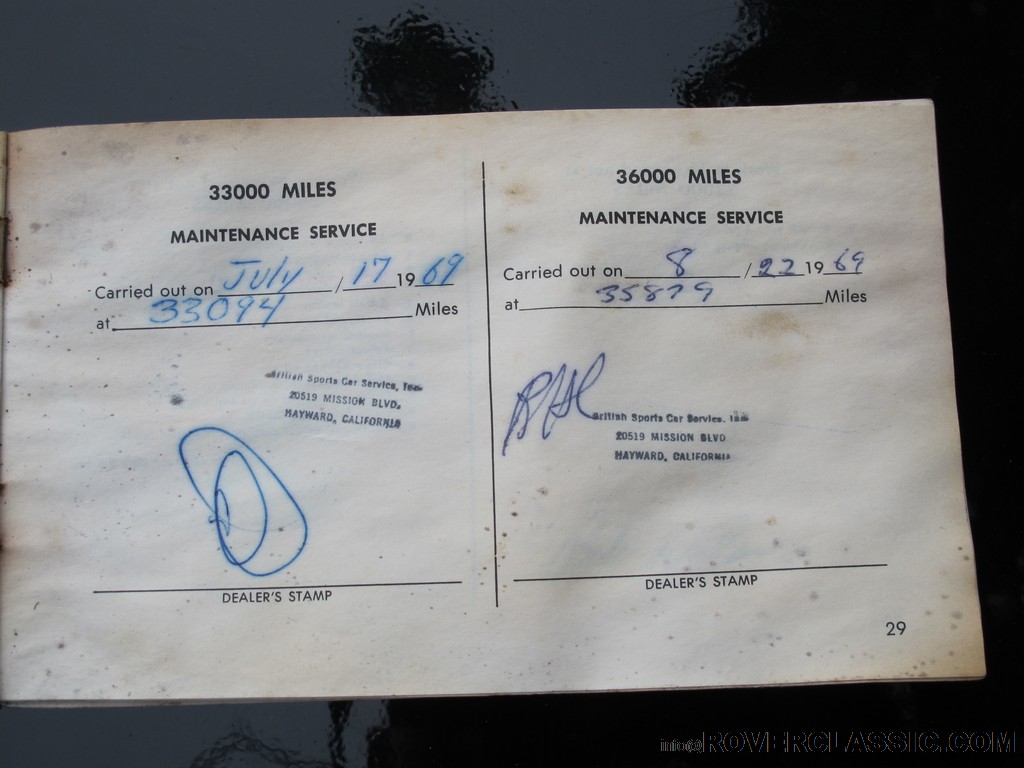 33000 MILES
MAINTENANCE SERVICE
Carried out on July / 17 19 69
at 33094 Miles
British Sports Car Service, Inc.
20519 MISSION BLVD.
HAYWARD, CALIFORNIA
DEALER'S STAMP
36000 MILES
MAINTENANCE SERVICE
Carried out on 8 / 22 19 69
at 35879 Miles
British Sports Car Service, Inc.
20519 MISSION BLVD
HAYWARD, CALIFORNIA
DEALER'S STAMP
29
info@ROVERCLASSIC.COM